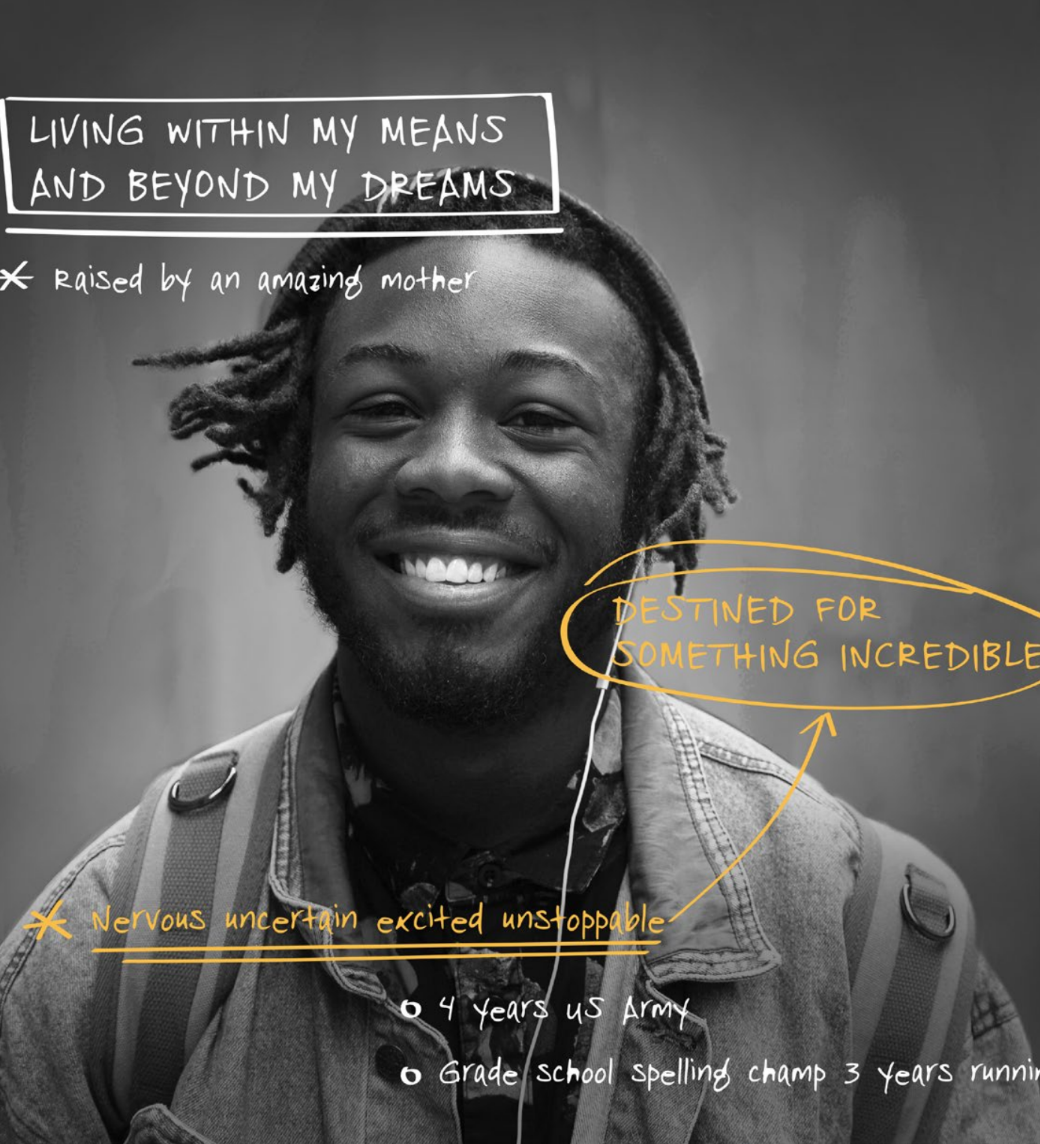 LIVING WITHIN MY MEANS
AND BEYOND MY DREAMS
Raised by an amazing mother
DESTINED FOR
SOMETHING INCREDIBLE
Nervous uncertain excited unstoppable
4 years US Army
Grade school spelling champ 3 years